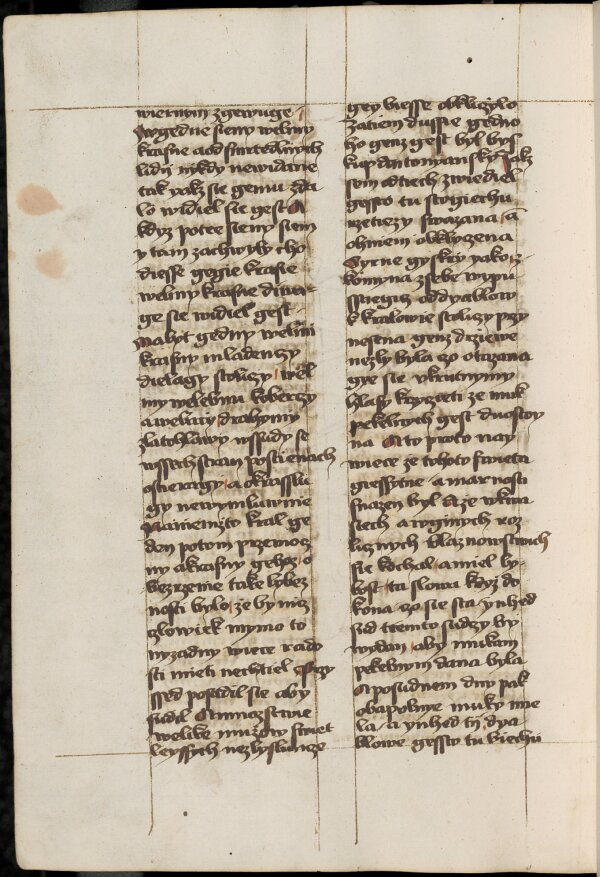 wiernym zgewuge
W gedne sieny welmy
krasne a od smrtedlnych
lidij nikdy newidane
tak yakz sie gemu zda
lo widiel sie gest A
kdyz po tee sieny siem
y tam zachwyly cho
diesse gegie krasie
welmy krasne diwa
ge sie widiel gest
Nalyt gedny welmi
krasny mladenczy
dielagy stoliczy wel
my welebnu koberczy
a welary drahymi
zlatohlawy wssudy se
wssech stran postienach
ostieragy a okrasslu
gy newymluwnie
Na niemzto kral ge
den potom przemoc
ny a krasny gehoz o
bezrzenie take lybez
nosti bylo ze by niz
czlowiek mymo to
nyzadny wiece rado
sti mieti nechtiel Przy
ssed posadil sie aby
sudil A mnozstwie
welike muzow swiet
leyssych nezly slunce
gey biesse obkliczylo
Zatiem dussie gedno
ho genz gest byl bys
kup antonyanský yakz
sem od tiech zwiediel
gessto tu stogiechu
rzetiezy swazana a
ohniem obklyczena
Syrne gyskry yako z
komyna z sebe wypu
sstiegicz od dyablow
k kralowie stolicy przy
nesena genz drziewe
nezly byla czo otazana
gye sie ukrutnymy
hlasy kryczeti ze muk
pekelnych gest duostoy
na A to proto nay
wiece ze tohoto swieta
gressytne a marnosti
snazen byl A ze w kwa
siech a w gynych roz
licznych blaznowstwich
sie kochal a miel ly
bost ta slowa kdyz do
kona czo sie sta ynhed
sud tremto sudczy by
wydan aby mukam
pekelnym dana byla
A po sudnem dny pak
obapolne muky mie
la A ynhed ty dya
blowe gessto tu biechu